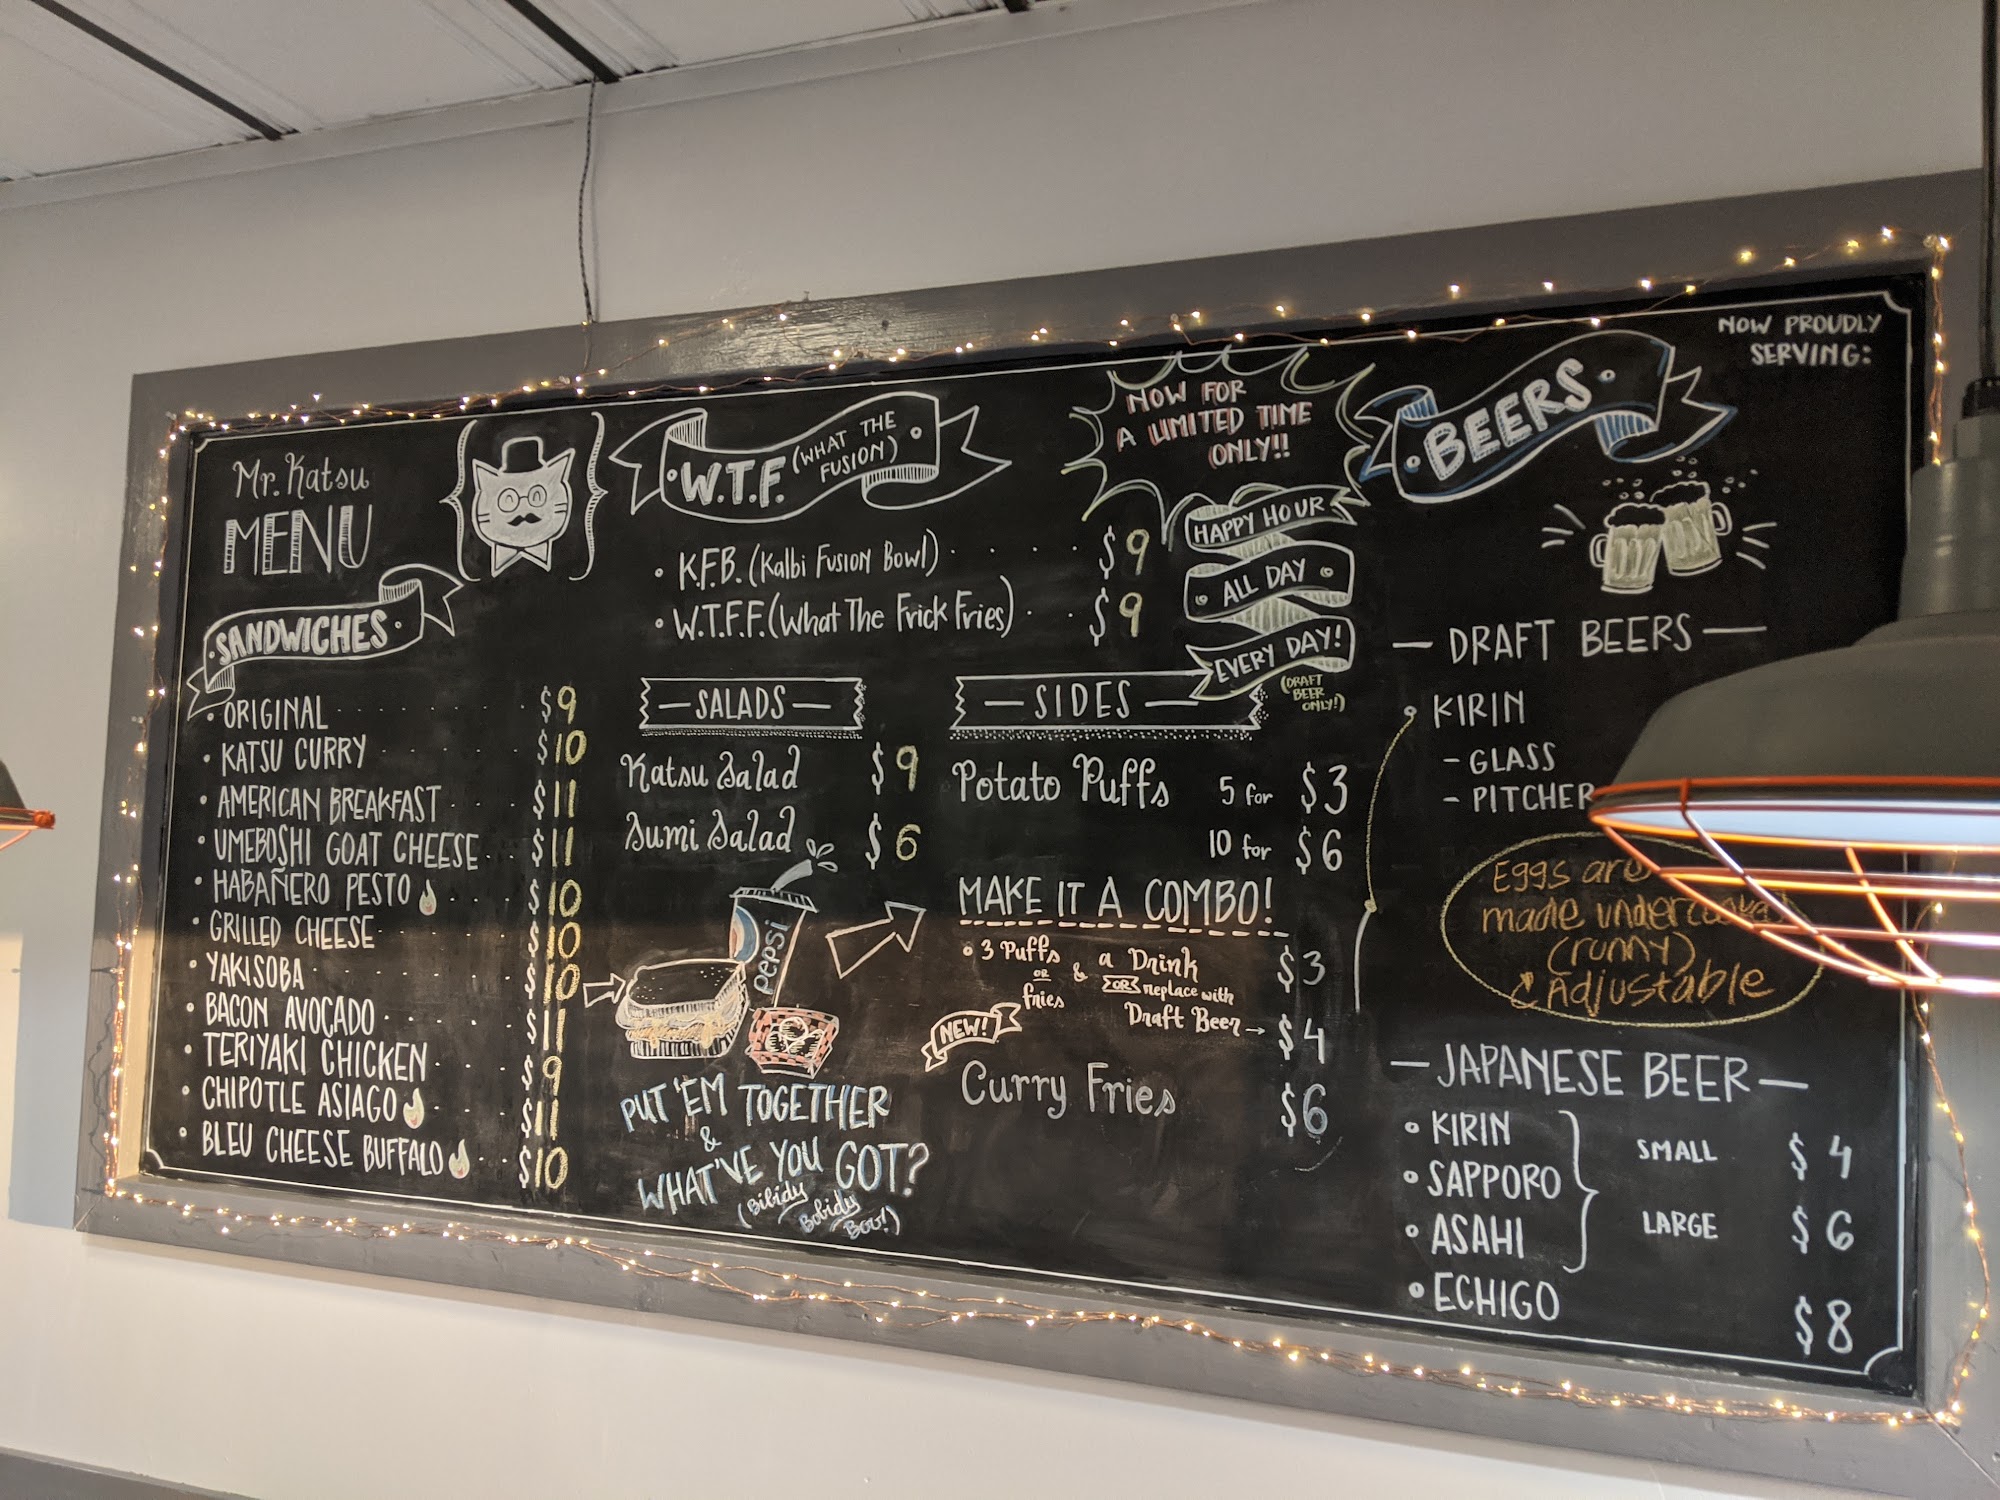 Mr. Katsu
MENU
SANDWICHES
• ORIGINAL $9
• KATSU CURRY $10
• AMERICAN BREAKFAST $11
• UMEBOSHI GOAT CHEESE $11
• HABAÑERO PESTO $10
• GRILLED CHEESE $10
• YAKISOBA $10
• BACON AVOCADO $11
• TERIYAKI CHICKEN $9
• CHIPOTLE ASIAGO $11
• BLEU CHEESE BUFFALO $10
W.T.F. (WHAT THE
FUSION)
• K.F.B. (Kalbi Fusion Bowl) $9
• W.T.F.F. (What The Frick Fries) $9
NOW FOR
A LIMITED TIME
ONLY!!
HAPPY HOUR
ALL DAY
EVERY DAY!
(DRAFT
BEER
ONLY!)
— SALADS —
Katsu Salad $9
Sumi Salad $6
pepsi
PUT 'EM TOGETHER
&
WHAT'VE YOU GOT?
(Bibidy
Bobidy
Boo!)
— SIDES —
Potato Puffs 5 for $3
10 for $6
MAKE IT A COMBO!
• 3 Puffs & a Drink $3
OR
fries
OR replace with
Draft Beer → $4
NEW!
Curry Fries $6
BEERS
NOW PROUDLY
SERVING:
— DRAFT BEERS —
• KIRIN
- GLASS
- PITCHER
Eggs are
made undercooked
(runny)
& Adjustable
— JAPANESE BEER —
• KIRIN
• SAPPORO
• ASAHI
SMALL $4
LARGE $6
• ECHIGO $8